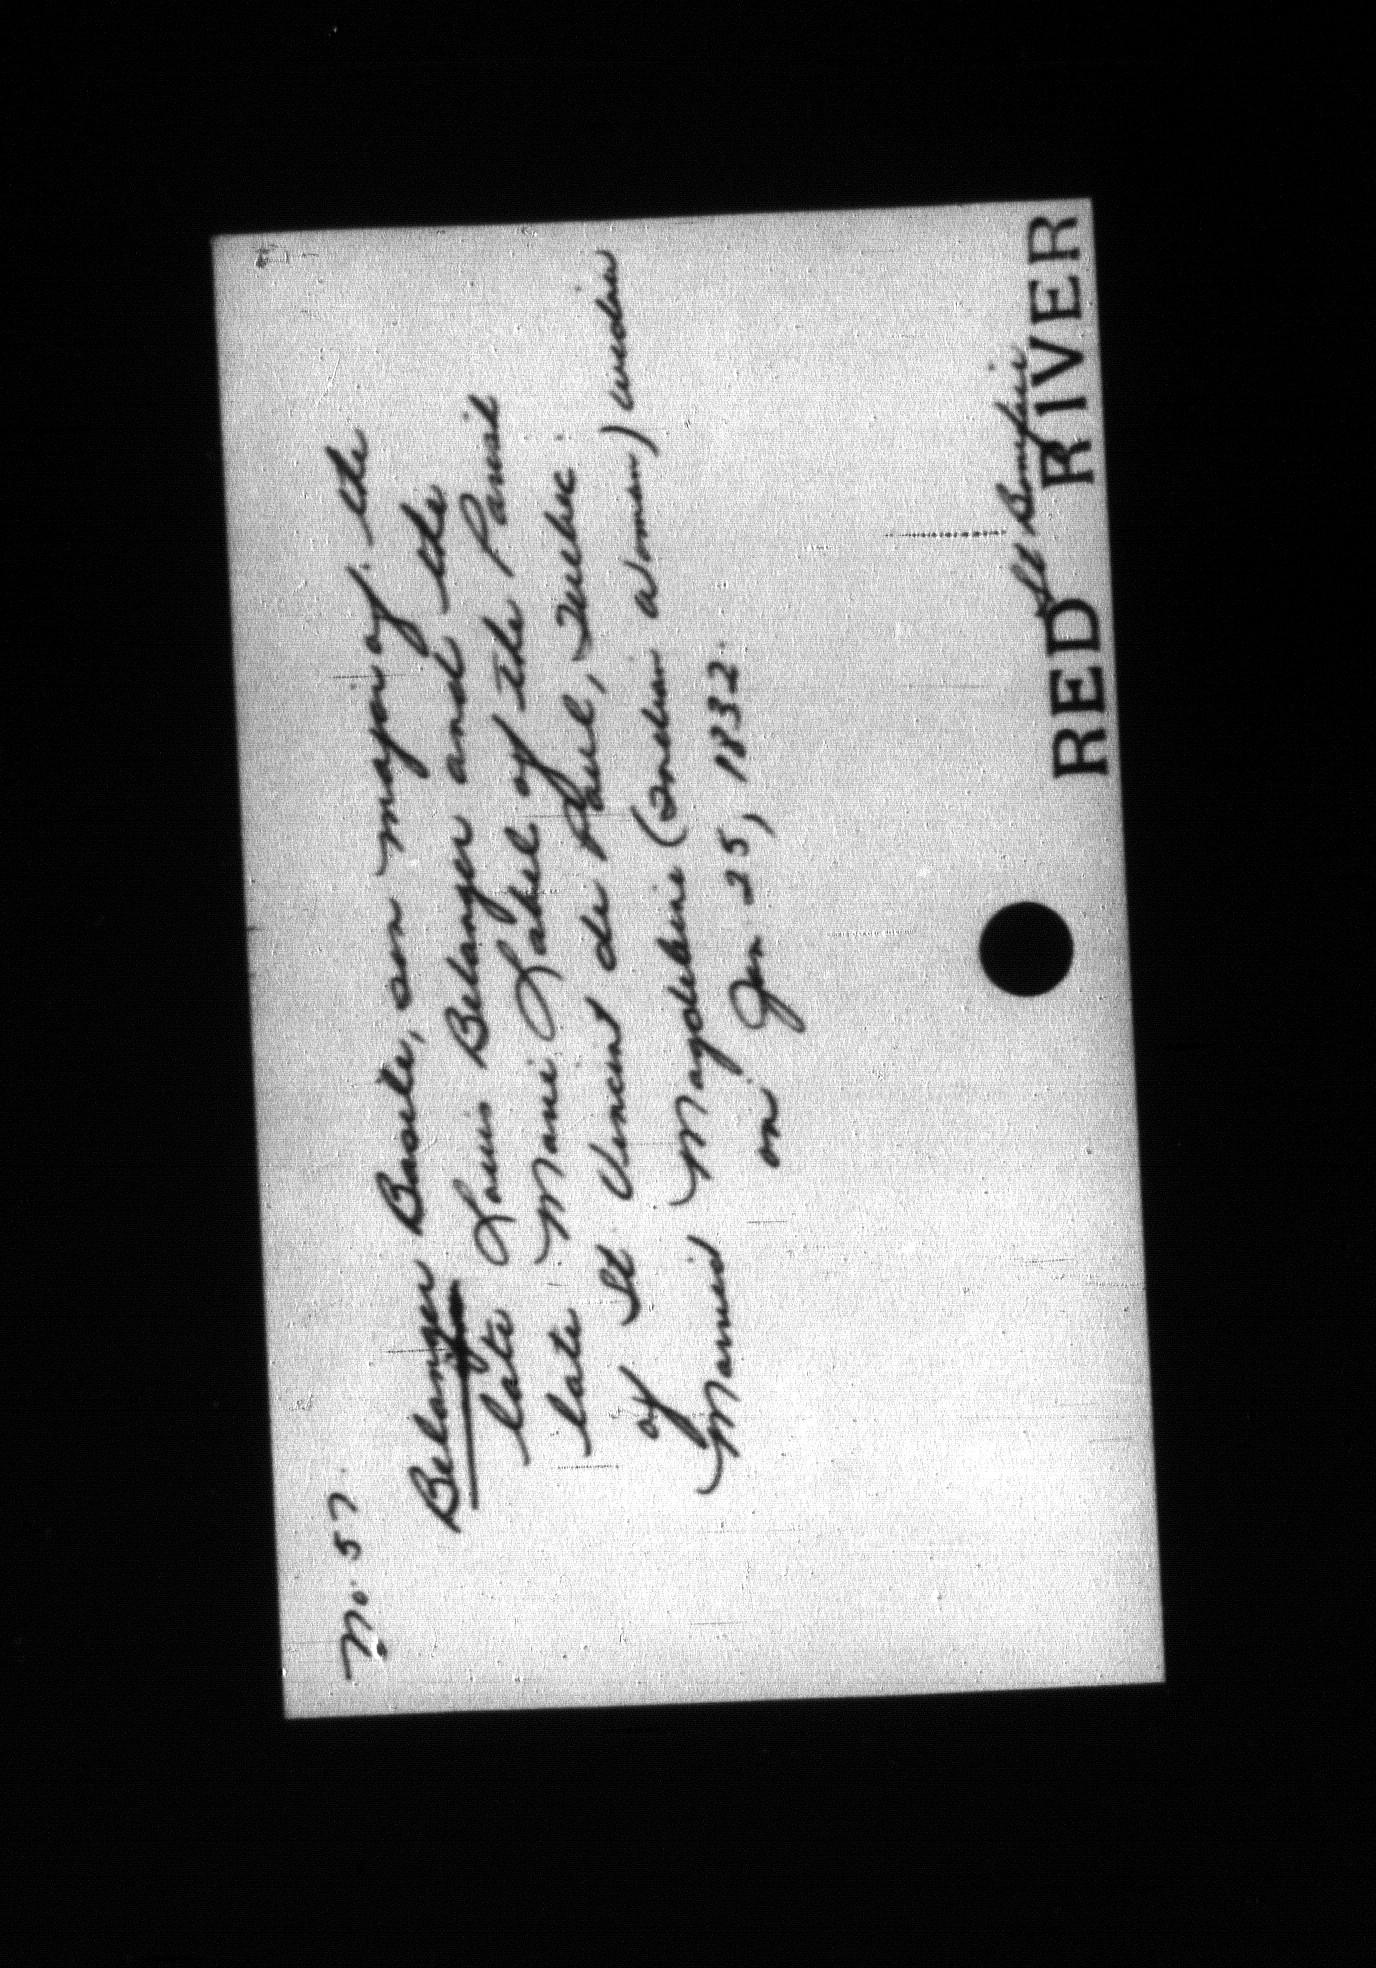 M. 57.
Belanger Basile, son major of the
late Louis Belanger and the
late Marie Label of the Parish
of St Vincent de Paul, Quebec.
Married Magdeleine (Indian woman) widow
on Jan 25, 1832.
St Boniface
RED RIVER